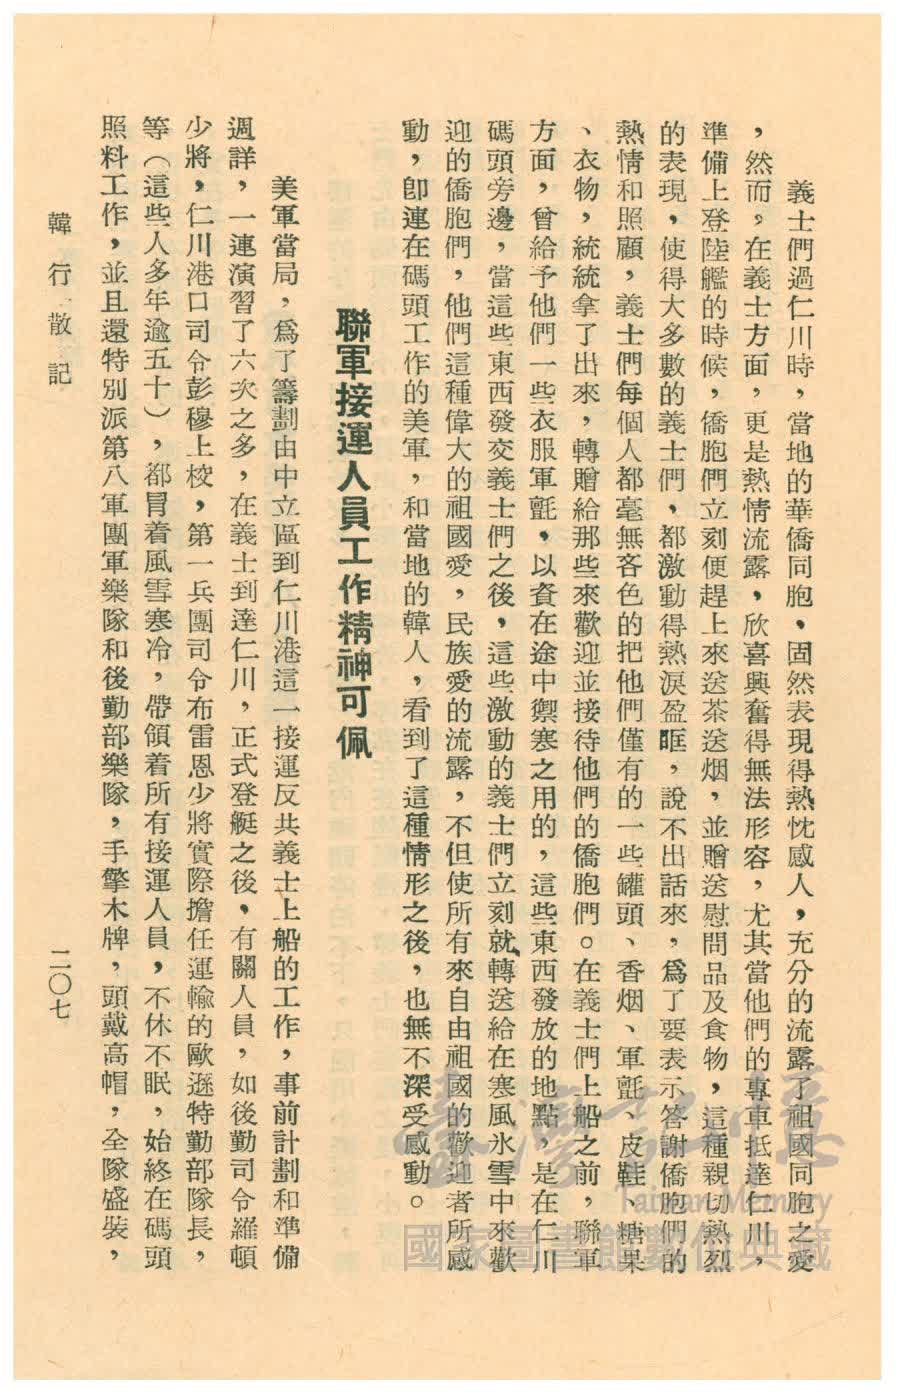 義士們過仁川時，當地的華僑同胞，固然表現得熱忱感人，充分的流露了祖國同胞之愛
，然而，在義士方面，更是熱情流露，欣喜興奮得無法形容，尤其當他們的專車抵達仁川，
準備上登陸艦的時候，僑胞們立刻便趕上來送茶送烟，並贈送慰問品及食物，這種親切熱烈
的表現，使得大多數的義士們，都激動得熱淚盈眶，說不出話來，爲了要表示答謝僑胞們的
熱情和照顧，義士們每個人都毫無吝色的把他們僅有的一些罐頭、香烟、軍氈、皮鞋、糖果
、衣物，統統拿了出來，轉贈給那些來歡迎並接待他們的僑胞們。在義士們上船之前，聯軍
方面，曾給予他們一些衣服軍氈，以資在途中禦寒之用的，這些東西發放的地點，是在仁川
碼頭旁邊，當這些東西發交義士們之後，這些激動的義士們立刻就轉送給在寒風氷雪中來歡
迎的僑胞們，他們這種偉大的祖國愛，民族愛的流露，不但使所有來自由祖國的歡迎者所感
動，卽連在碼頭工作的美軍，和當地的韓人，看到了這種情形之後，也無不深受感動。
聯軍接運人員工作精神可佩
美軍當局，爲了籌劃由中立區到仁川港這一接運反共義士上船的工作，事前計劃和準備
週詳，一連演習了六次之多，在義士到達仁川，正式登艇之後，有關人員，如後勤司令羅頓
少將，仁川港口司令彭穆上校，第一兵團司令布雷恩少將實際擔任運輸的歐遜特勤部隊長，
等（這些人多年逾五十），都冒着風雪寒冷，帶領着所有接運人員，不休不眠，始終在碼頭
照料工作，並且還特別派第八軍團軍樂隊和後勤部樂隊，手擎木牌，頭戴高帽，全隊盛裝，
韓行散記
二〇七
臺灣記憶
Taiwan Memory
國家圖書館數位典藏